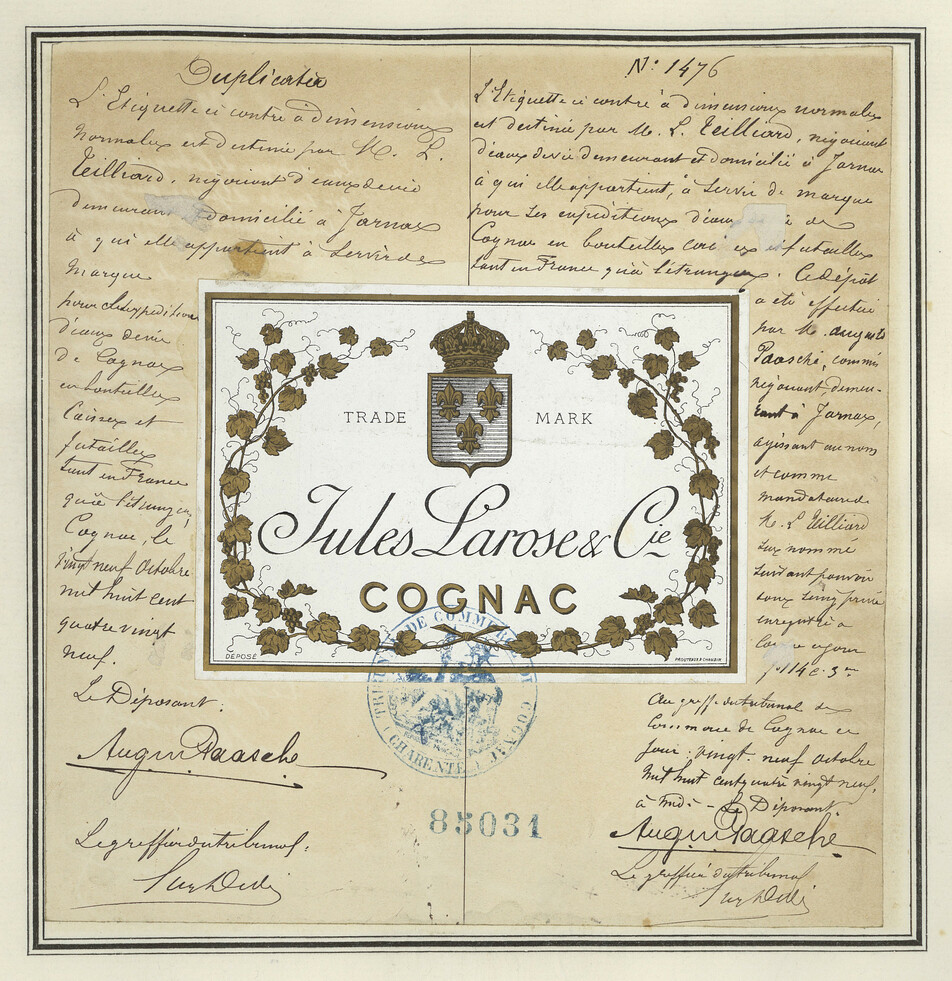 Duplicata
L'Etiquette ci contre a dimensions
normales est destinée par M. L.
Teilliard, négociant d'eaux de vie
demeurant domicilié à Jarnac
à qui elle appartient à servir de
marque
pour des expéditions
d'eaux de vie
de Cognac
en bouteilles
caisses et
futailles
tant en France
qu'à l'étranger,
Cognac, le
vingt neuf octobre
mil huit cent
quatre vingt
neuf.
Le Déposant:
August Paasche
Le greffier du tribunal.
N° 1476
L'Etiquette ci contre à dimensions normales
est destinée par M. L. Teilliard, négociant
d'eaux de vie demeurant et domicilié à Jarnac
à qui elle appartient, à servir de marque
pour ses expéditions d'eaux de
Cognac en bouteilles et futailles
tant en France qu'à l'étranger. Ce dépôt
a été effectué
par M. Auguste
Paasche, commis
négociant, demeu-
rant à Jarnac,
agissant au nom
et comme
mandataire de
M. L Teilliard
sus nommé
suivant pouvoir
sous seing privé
enregistré à
ce jour
fº 114 C. 3
Au greffe du tribunal de
Commerce de Cognac ce
jour: vingt-neuf octobre
mil huit cent quatre vingt neuf,
à midi - Le Déposant
August Paasche
Le greffier du tribunal
TRADE MARK
Jules Larose & Cie
COGNAC
DÉPOSÉ
TRIBUNAL DE COMMERCE DE COGNAC
(CHARENTE)
85031